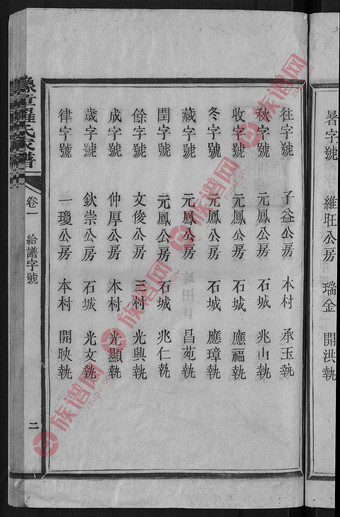 暑字號 維珏公房 瑞金 開洪執
往字號 子益公房 本村 承玉執
秋字號 元鳳公房 石城 兆山執
收字號 元鳳公房 石城 應福執
冬字號 元鳳公房 石城 應璋執
藏字號 元鳳公房 昌苑執
閏字號 元鳳公房 石城 兆仁執
餘字號 文俊公房 三村 光與執
成字號 仲厚公房 本村 光顯執
歲字號 欽崇公房 石城 光文執
律字號 一瓊公房 本村 開映執
氏家譜
卷一 給譜字號
二
族谱网